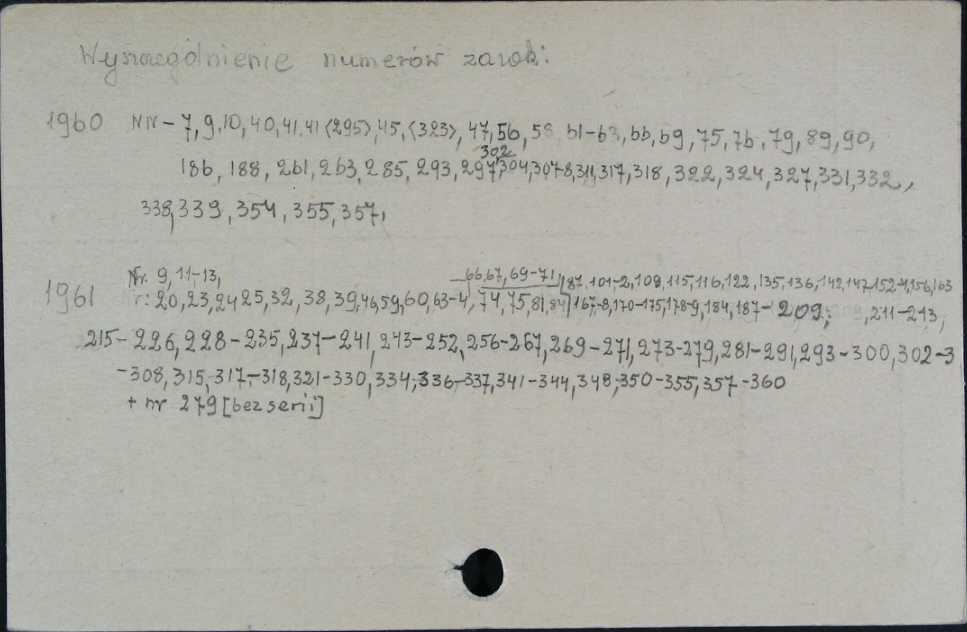 Wyszczególnienie numerów zarok:
1960 NN - 7, 9, 10, 40, 41, 41 <295>, 45, <323>, 47, 56, 58, 61-63, 66, 69, 75, 76, 79, 89, 90,
302
186, 188, 261, 263, 285, 293, 297, 304, 307-8, 311, 317, 318, 322, 324, 327, 331, 332,
338, 339, 354, 355, 357,
Nr. 9, 11-13, 66, 67, 69-71, 87, 101-2, 109, 115, 116, 122, 135, 136, 142, 147, 152-4, 156, 163
1961 r: 20, 23, 24 25, 32, 38, 39, 46, 59, 60, 63-4, 74, 75, 81, 84, 167-8, 170-175, 178-9, 184, 187-209; 211-213,
215-226, 228-235, 237-241, 243-252, 256-267, 269-271, 273-279, 281-291, 293-300, 302-3
-308, 315, 317-318, 321-330, 334, 336-337, 341-344, 348, 350-355, 357-360
+ nr 279 [bez serii]